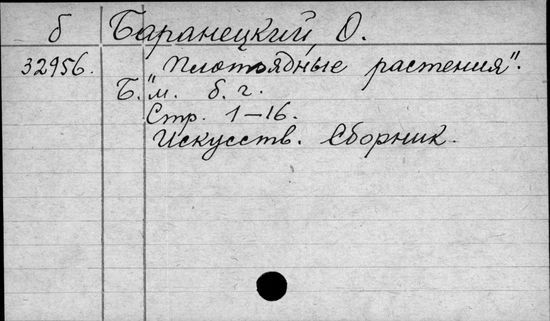 б Баранецкий, О.
32956. "Плотоядные растения".
Б. м. б. г.
Стр. 1-16.
Искусств. Сборник.